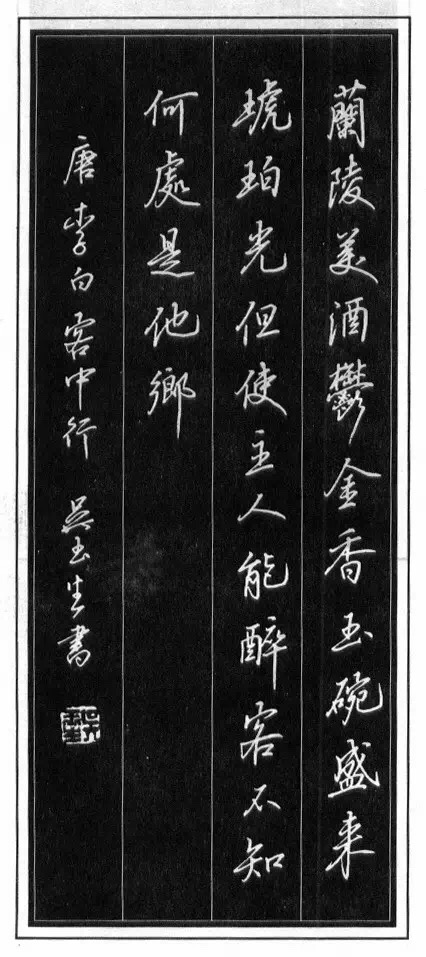 蘭陵美酒鬱金香玉碗盛来
琥珀光但使主人能醉客不知
何處是他鄉
唐李白客中行 吴玉生書